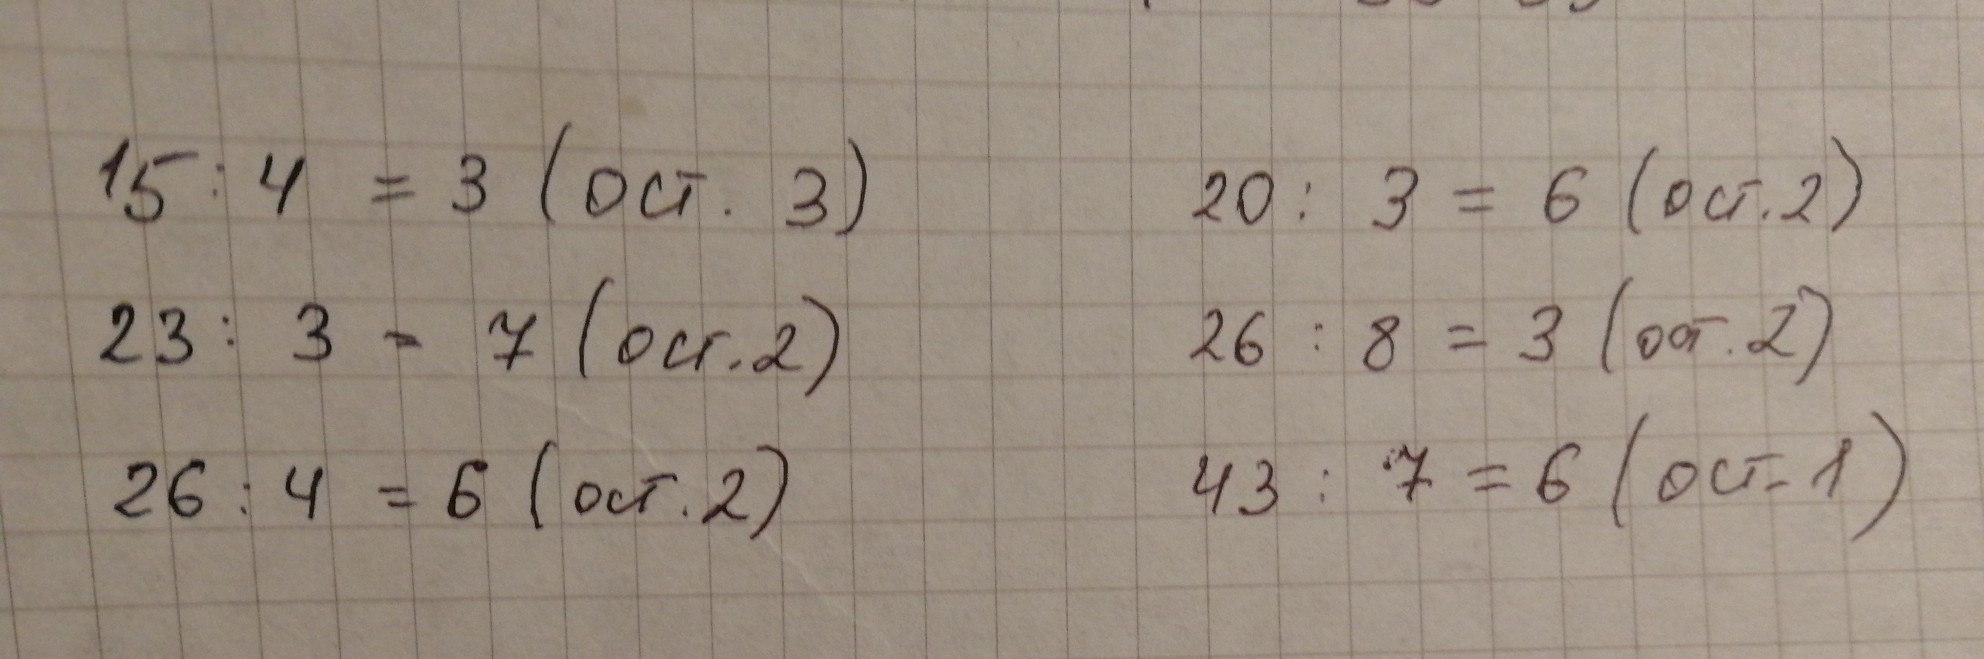 15 : 4 = 3 (ост. 3)
23 : 3 = 7 (ост. 2)
26 : 4 = 6 (ост. 2)
20 : 3 = 6 (ост. 2)
26 : 8 = 3 (ост. 2)
43 : 7 = 6 (ост. 1)